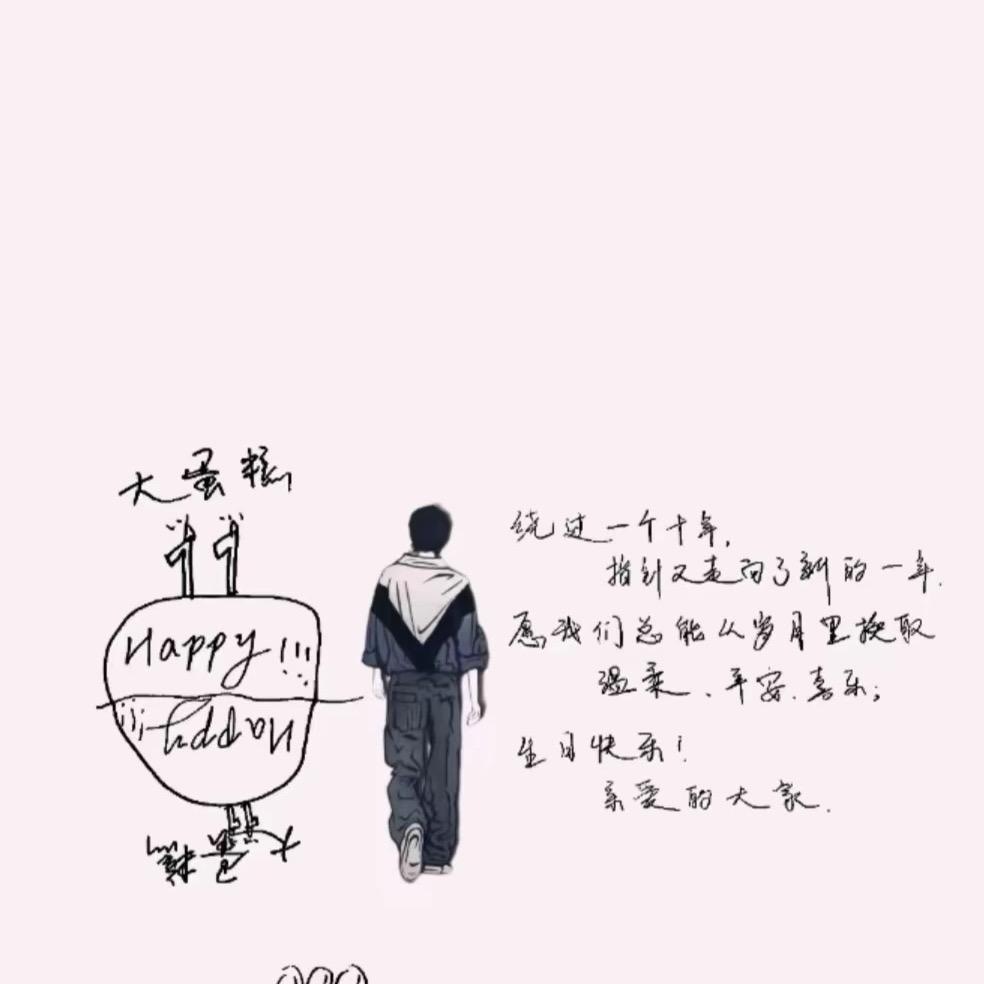 大蛋糕
Happy!!!
Happy!!!
大蛋糕
绕过一个十年,
指针又走向了新的一年.
愿我们总能从岁月里换取
温柔、平安、喜乐;
生日快乐!
亲爱的大家.